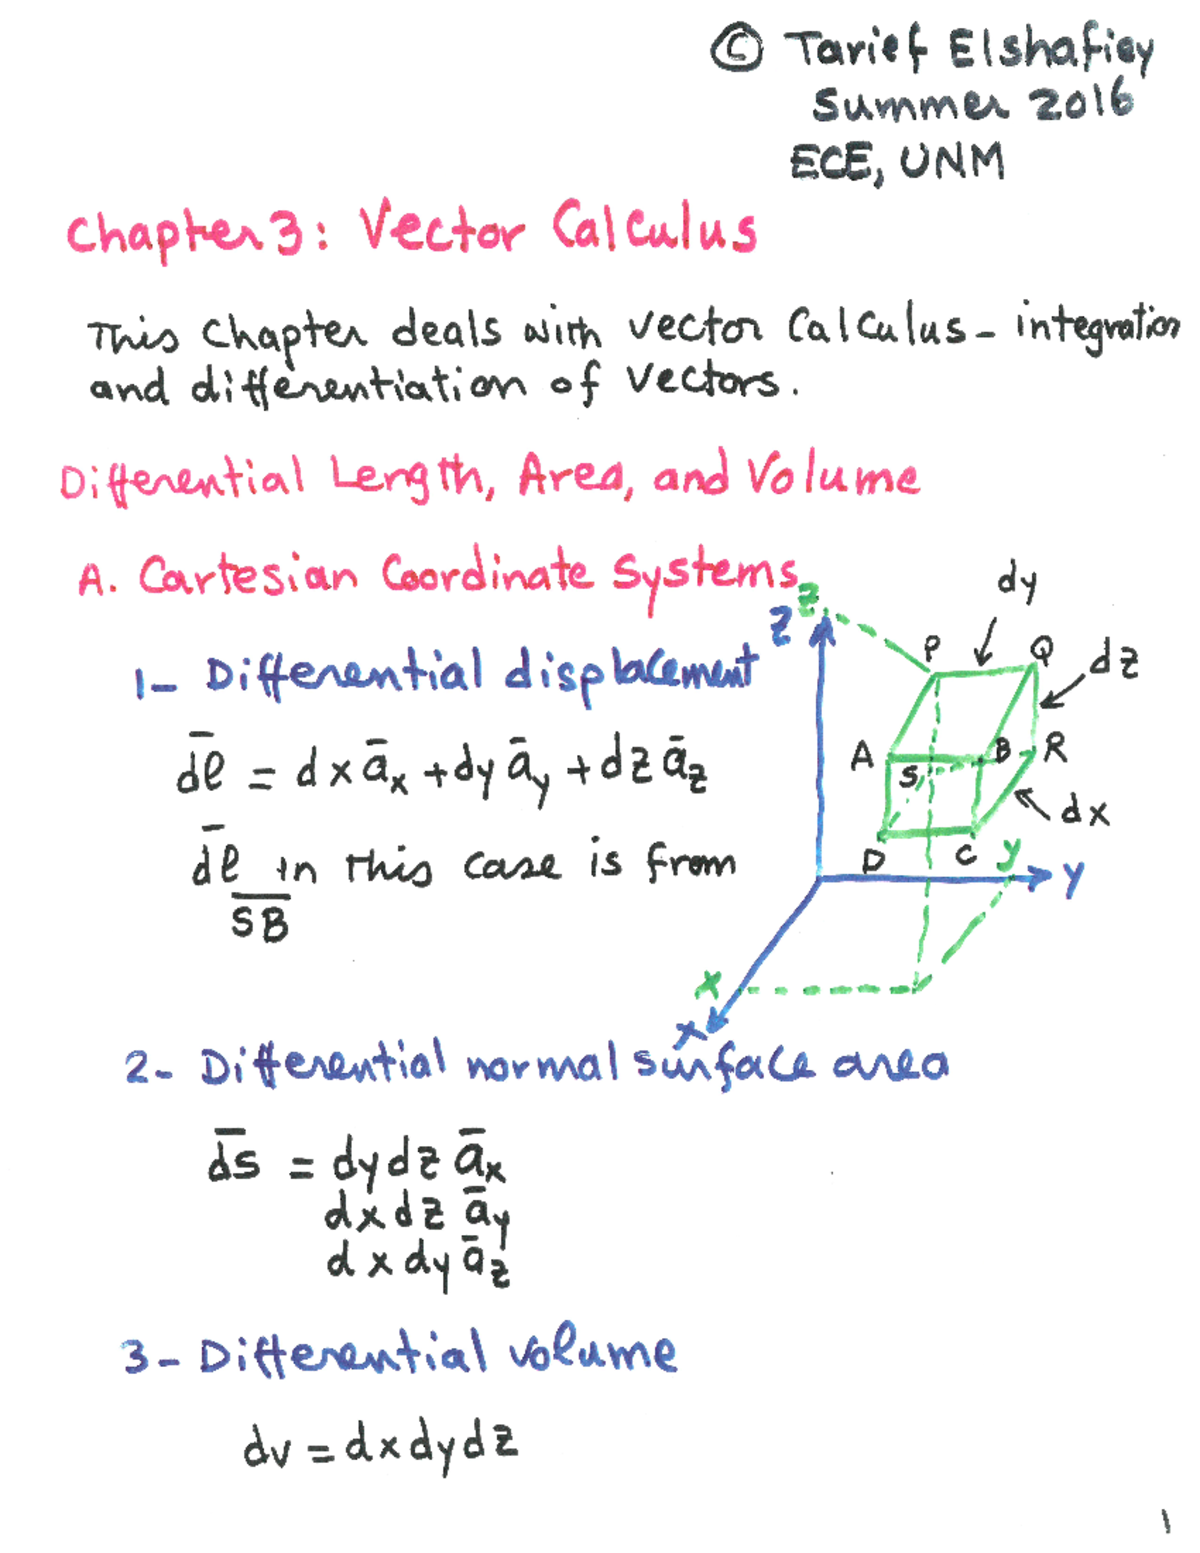 © Tarief Elshafiey
Summer 2016
ECE, UNM
Chapter 3: Vector Calculus
This Chapter deals with vector Calculus - integration
and differentiation of vectors.
Differential Length, Area, and Volume
A. Cartesian Coordinate Systems
1- Differential displacement
d̄l = dx āx + dy āy + dz āz
d̄l in this case is from
SB
z
z
dy
P
Q
dz
A
B
R
S
dx
D
C
y
y
x
x
2- Differential normal surface area
d̄s = dydz āx
dxdz āy
dxdy āz
3- Differential volume
dv = dxdydz
1